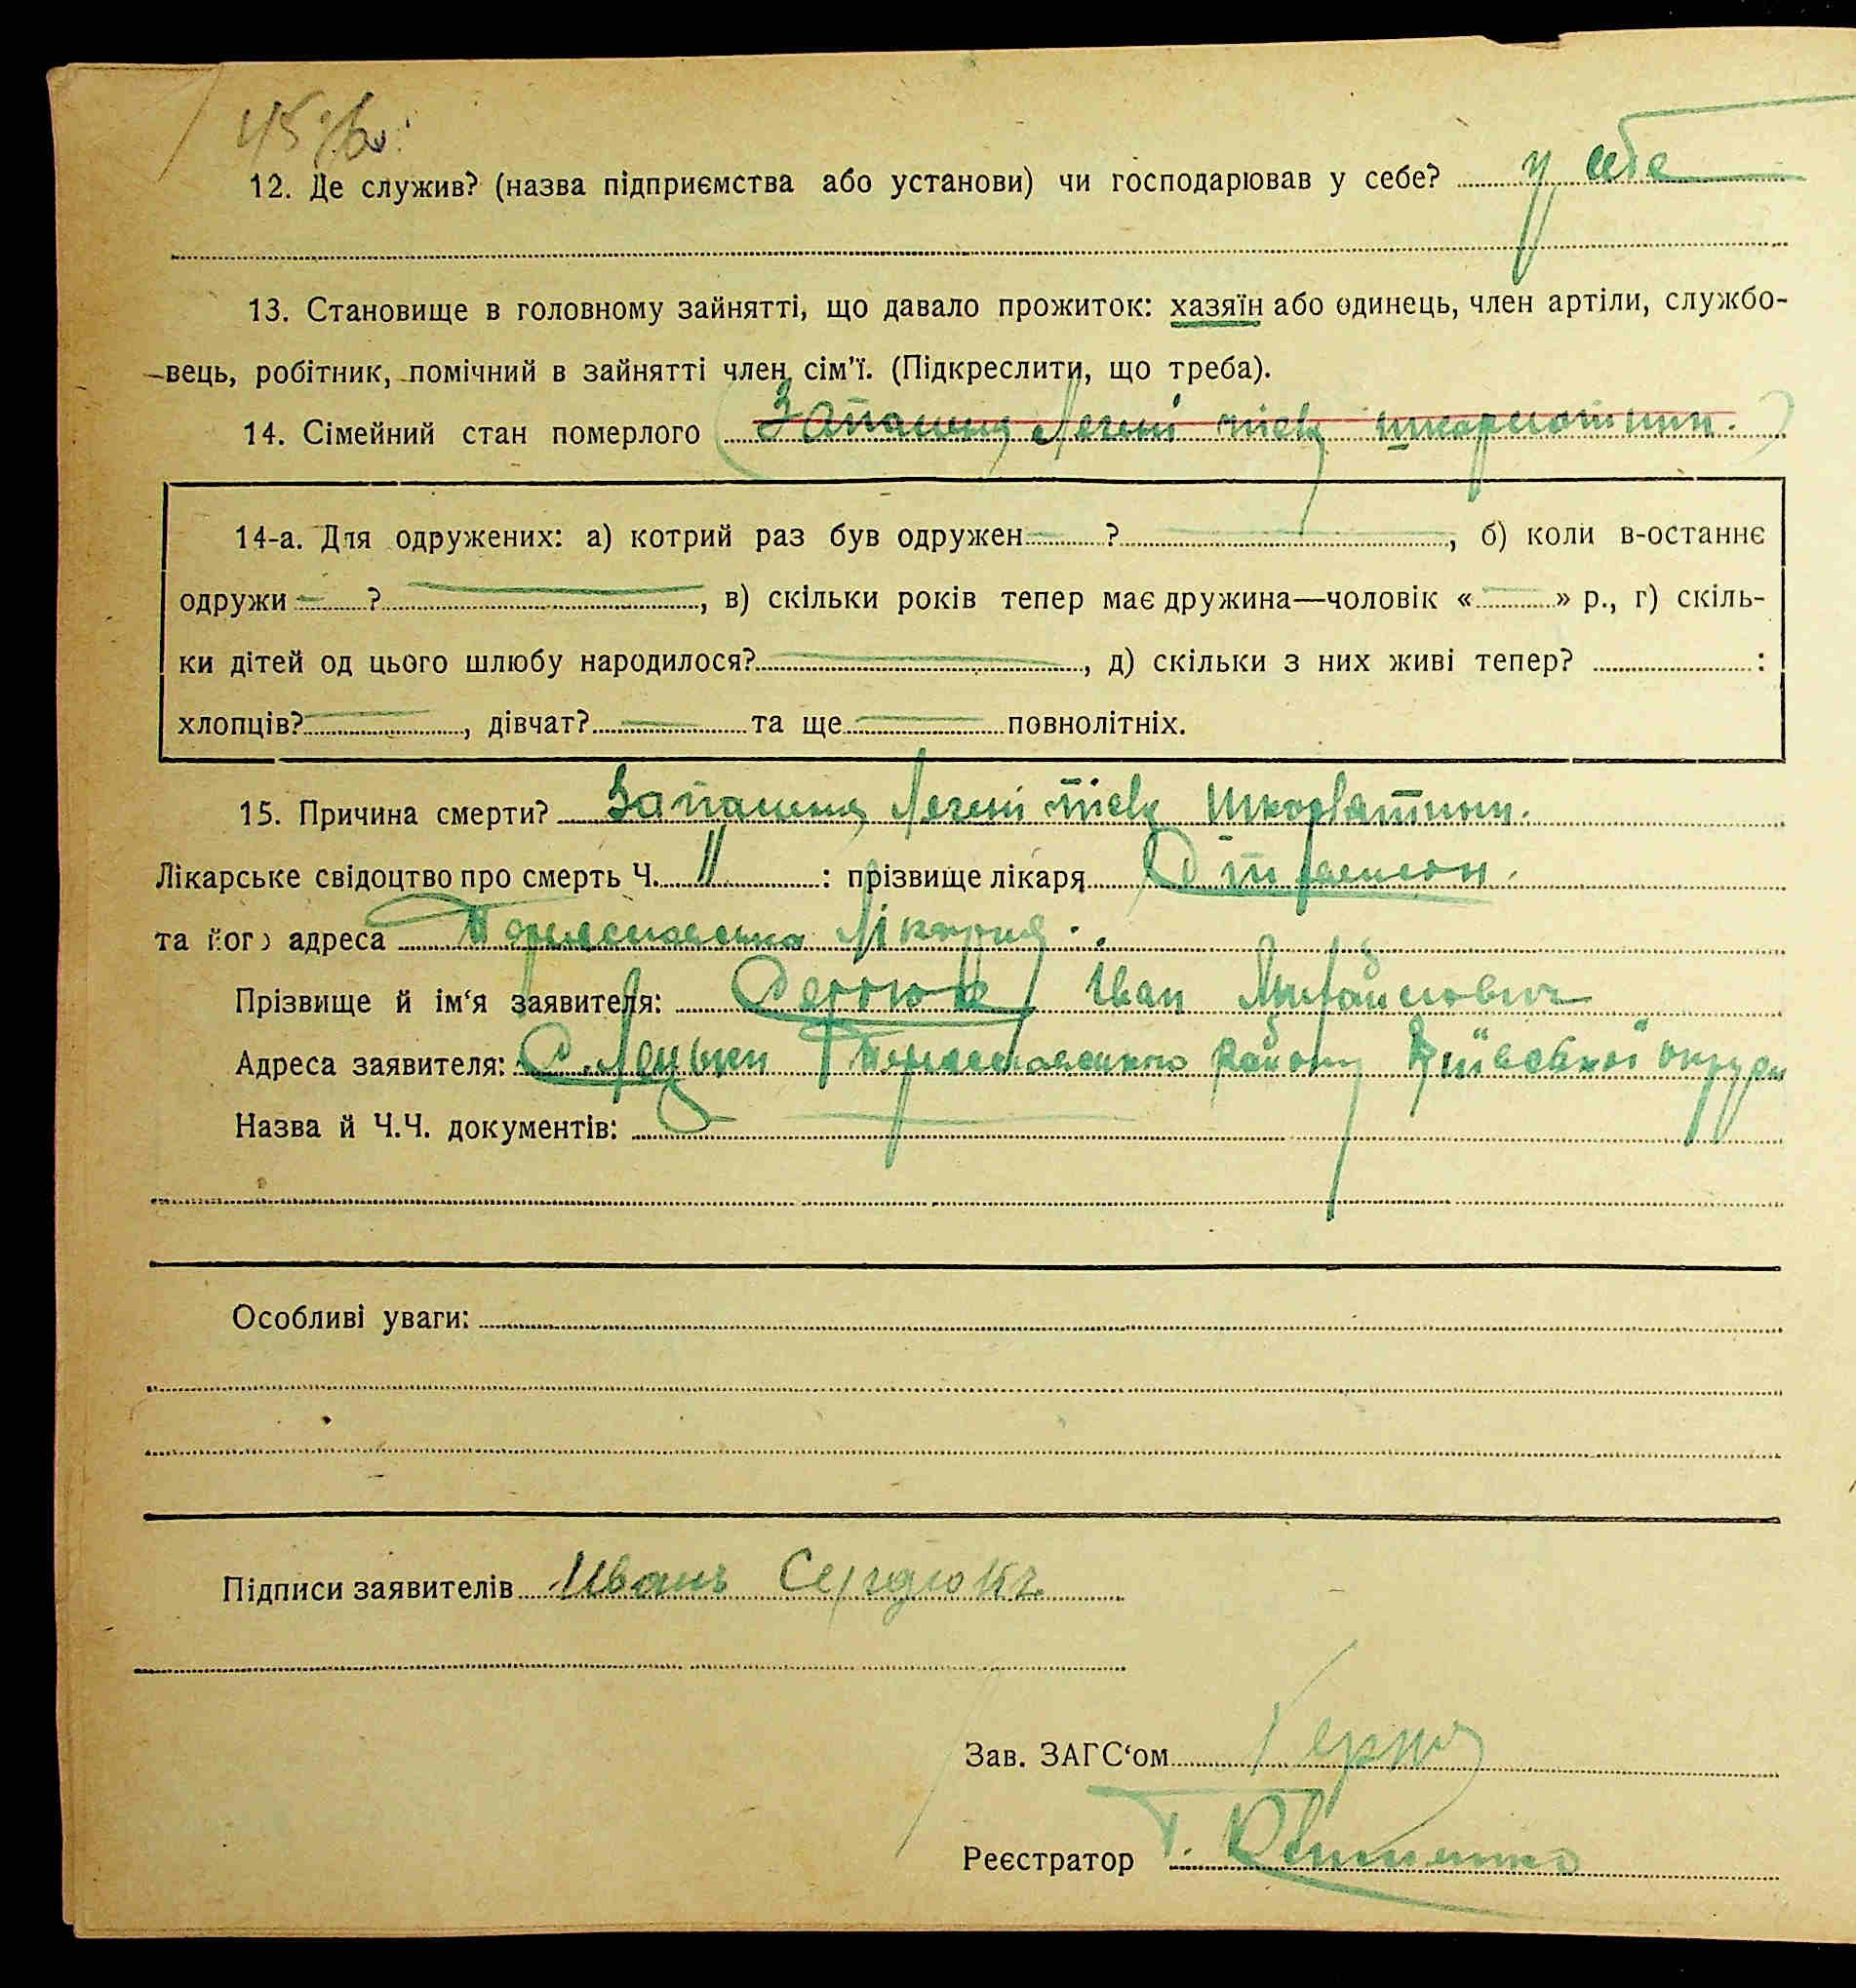 45 зв.
12. Де служив? (назва підприємства або установи) чи господарював у себе? у себе
13. Становище в головному зайнятті, що давало прожиток: хазяїн або одинець, член артіли, службо-
вець, робітник, помічний в зайнятті член сім'ї. (Підкреслити, що треба).
14. Сімейний стан померлого (Запалення легені після шкарлятини.)
14-а. Для одружених: а) котрий раз був одружен ? , б) коли в-останнє
одружи ? , в) скільки років тепер має дружина—чоловік « » р., г) скіль-
ки дітей од цього шлюбу народилося? , д) скільки з них живі тепер? :
хлопців? , дівчат? та ще повнолітніх.
15. Причина смерти? Запалення легені після шкорлятини.
Лікарське свідоцтво про смерть Ч. 11 : прізвище лікаря
та його адреса Переяславська лікарня.
Прізвище й ім'я заявителя: Сердюк Іван Михайлович
Адреса заявителя: С. Лецьки Переяславського району Київської округи
Назва й Ч.Ч. документів:
Особливі уваги:
Підписи заявителів Иванъ Сердюкъ
Зав. ЗАГС'ом
Реєстратор